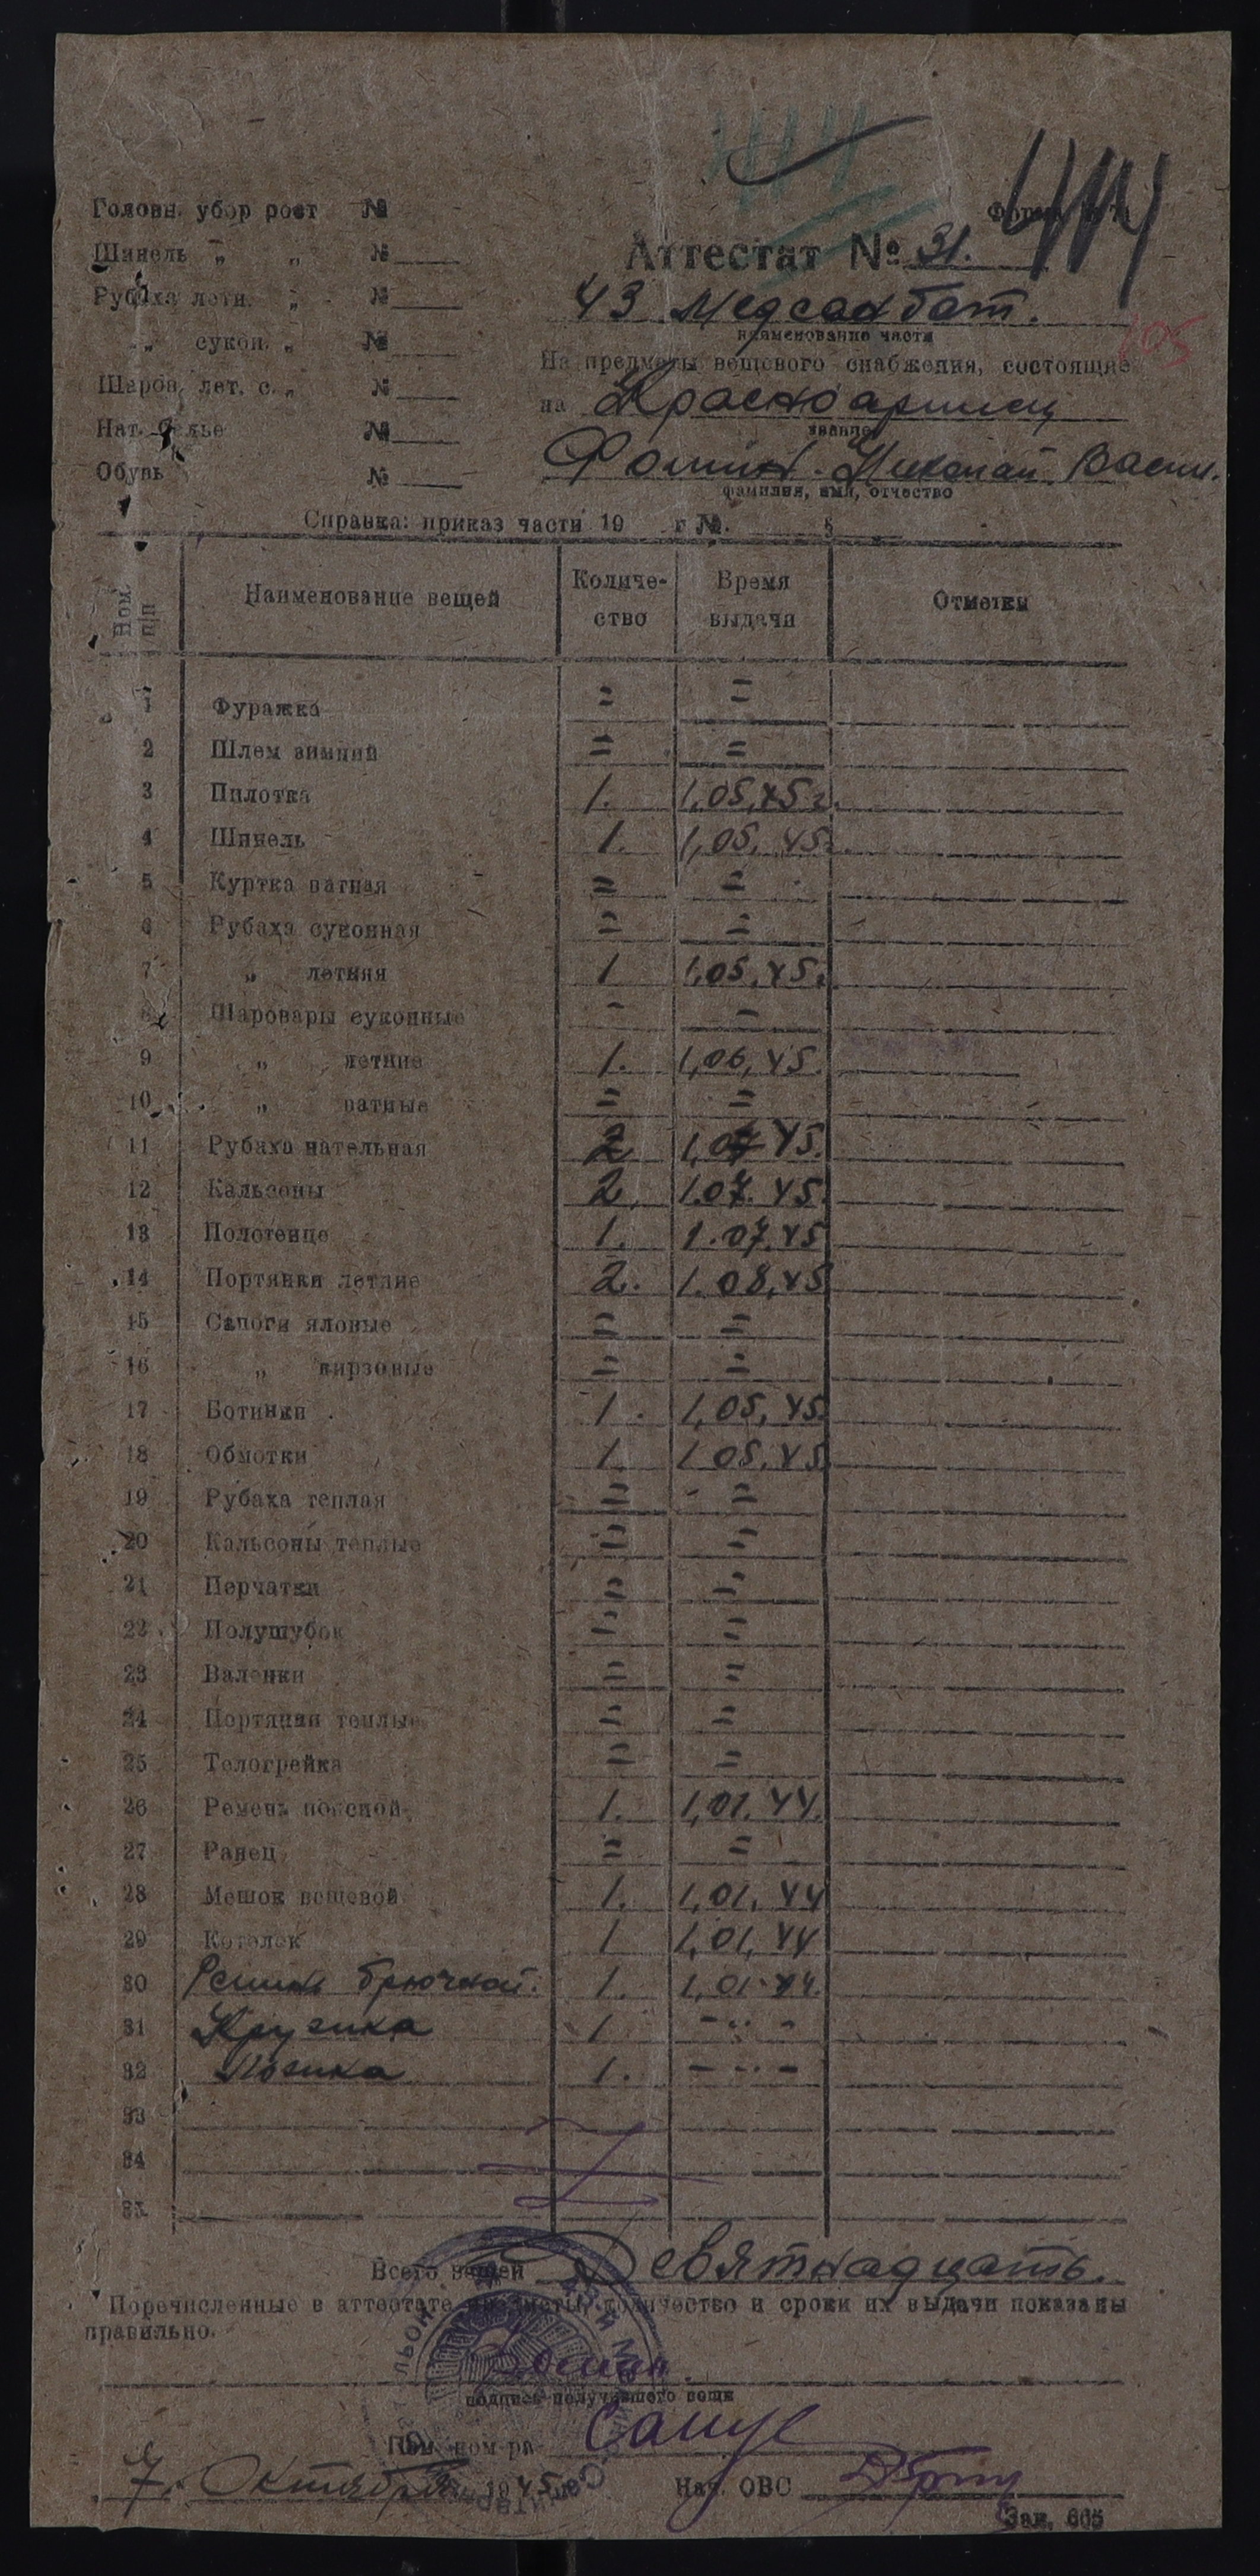 Головн. убор рост №
Шинель „ „ №
Рубаха летн. „ №
„ сукон. „ №
Шаров. лет. с. „ №
Нат. белье №
Обувь №
Аттестат № 31.
43 Медсанбат.
наименование части
105
На предметы вещевого снабжения, состоящие
на Красноармеец
звание
Фомин Николай Васил.
фамилия, имя, отчество
Справка: приказ части 19 г. №. §
Ном. п/п Наименование вещей Количе-ство Время выдачи Отметки
1 Фуражка = =
2 Шлем зимний = =
3 Пилотка 1. 1,05,45 г.
4 Шинель 1. 1,05,45.
5 Куртка ватная = =
6 Рубаха суконная = =
7 „ летняя 1 1,05,45.
8 Шаровары суконные - =
9 „ летние 1. 1,06,45.
10 „ ватные = =
11 Рубаха нательная 2 1,07 45.
12 Кальсоны 2. 1.07.45.
13 Полотенце 1. 1.07.45
14 Портянки летние 2. 1.08,45
15 Сапоги яловые = =
16 „ кирзовые = =
17 Ботинки 1. 1,05,45.
18 Обмотки 1. 1 05.45
19 Рубаха теплая = =
20 Кальсоны теплые = =
21 Перчатки = =
22 Полушубок = =
23 Валенки = =
24 Портянки теплые = =
25 Телогрейка = =
26 Ремень поясной 1. 1,01.44.
27 Ранец = =
28 Мешок вещевой 1. 1,01.44
29 Котелок 1 1,01,44
30 Ремень брючной. 1. 1,01.44.
31 Кружка 1 - „ -
32 Ложка 1. - „ -
33
34
35
Всего вещей Девятнадцать.
Перечисленные в аттестате предметы, количество и сроки их выдачи показаны
правильно.
Фомин.
подпись получившего вещи
Пом. ком-ра
7. Октября 1945
Нач. ОВС
Зак. 665